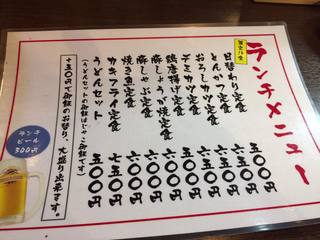 ランチメニュー
日替わり定食 五〇〇円
とんかつ定食 六〇〇円
おろしカツ定食 六〇〇円
デミカツ定食 六〇〇円
鶏唐揚げ定食 六〇〇円
豚しょうが焼定食 六〇〇円
豚しゃぶ定食 六〇〇円
焼き魚定食 六〇〇円
カキフライ定食 七五〇円
うどんセット 五〇〇円
(うどんセットの御飯はじゃこ御飯です。)
+五〇円で御飯のお替り、大盛り出来ます。
ランチ
ビール
300円